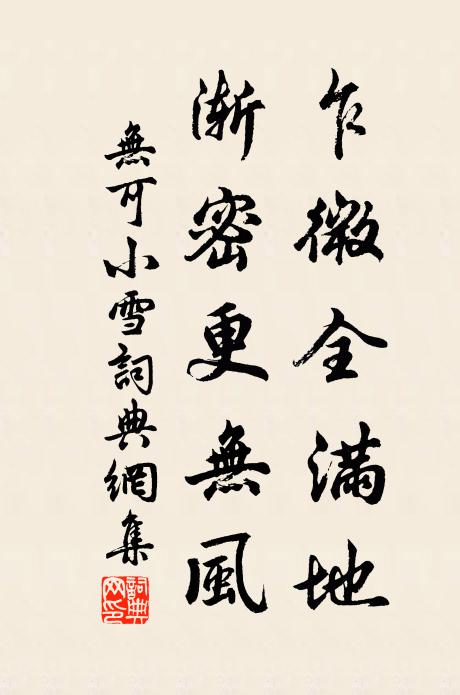 乍微全滿地
漸密更無風
無可小雪詞典網集
詞典网印